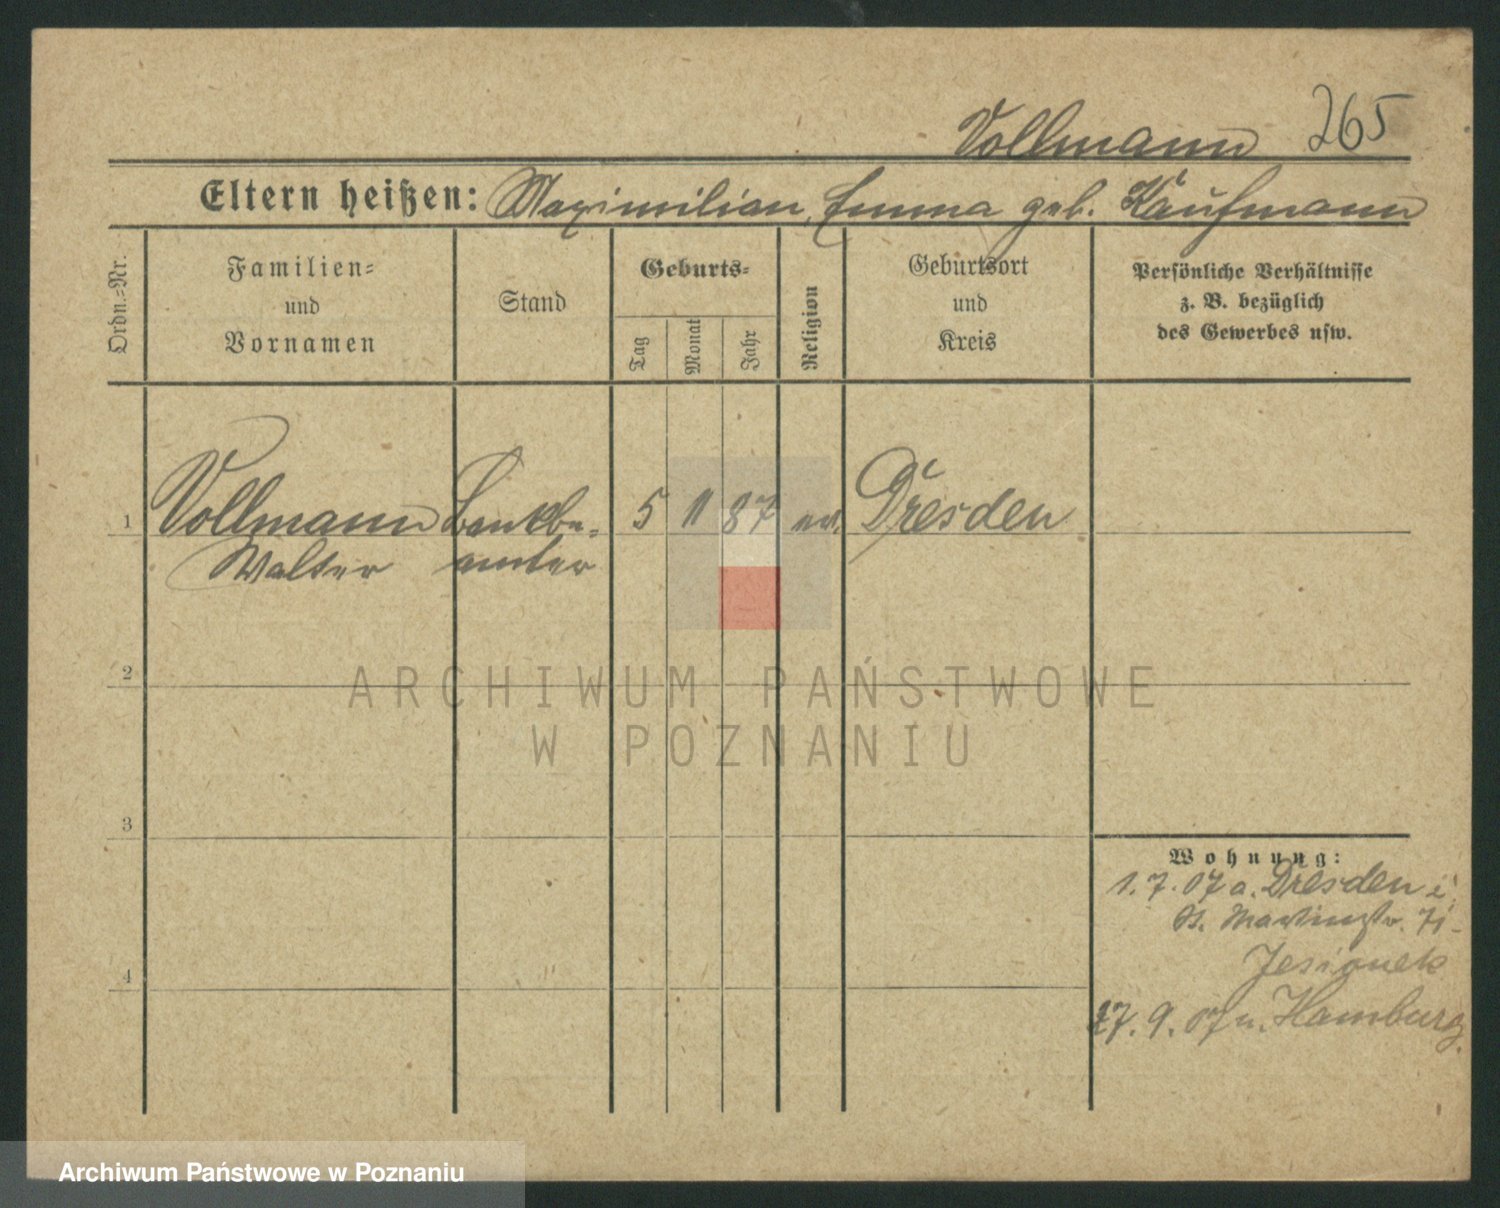 Vollmann 265
Eltern heißen: Maximilian, Emma geb. Kaufmann
Ordn.=Nr.
Familien=
und
Vornamen
Stand
Geburts=
Tag
Monat
Jahr
Religion
Geburtsort
und
Kreis
Persönliche Verhältnisse
z. B. bezüglich
des Gewerbes usw.
1 Vollmann Bankbe= 5 11 87 ev. Dresden
Walter amter
2
ARCHIWUM PAŃSTWOWE
W POZNANIU
3
Wohnung:
1. 7. 07 a. Dresden
St. Martinstr. 71
Jesionek
27. 9. 07 n. Hamburg.
4
Archiwum Państwowe w Poznaniu